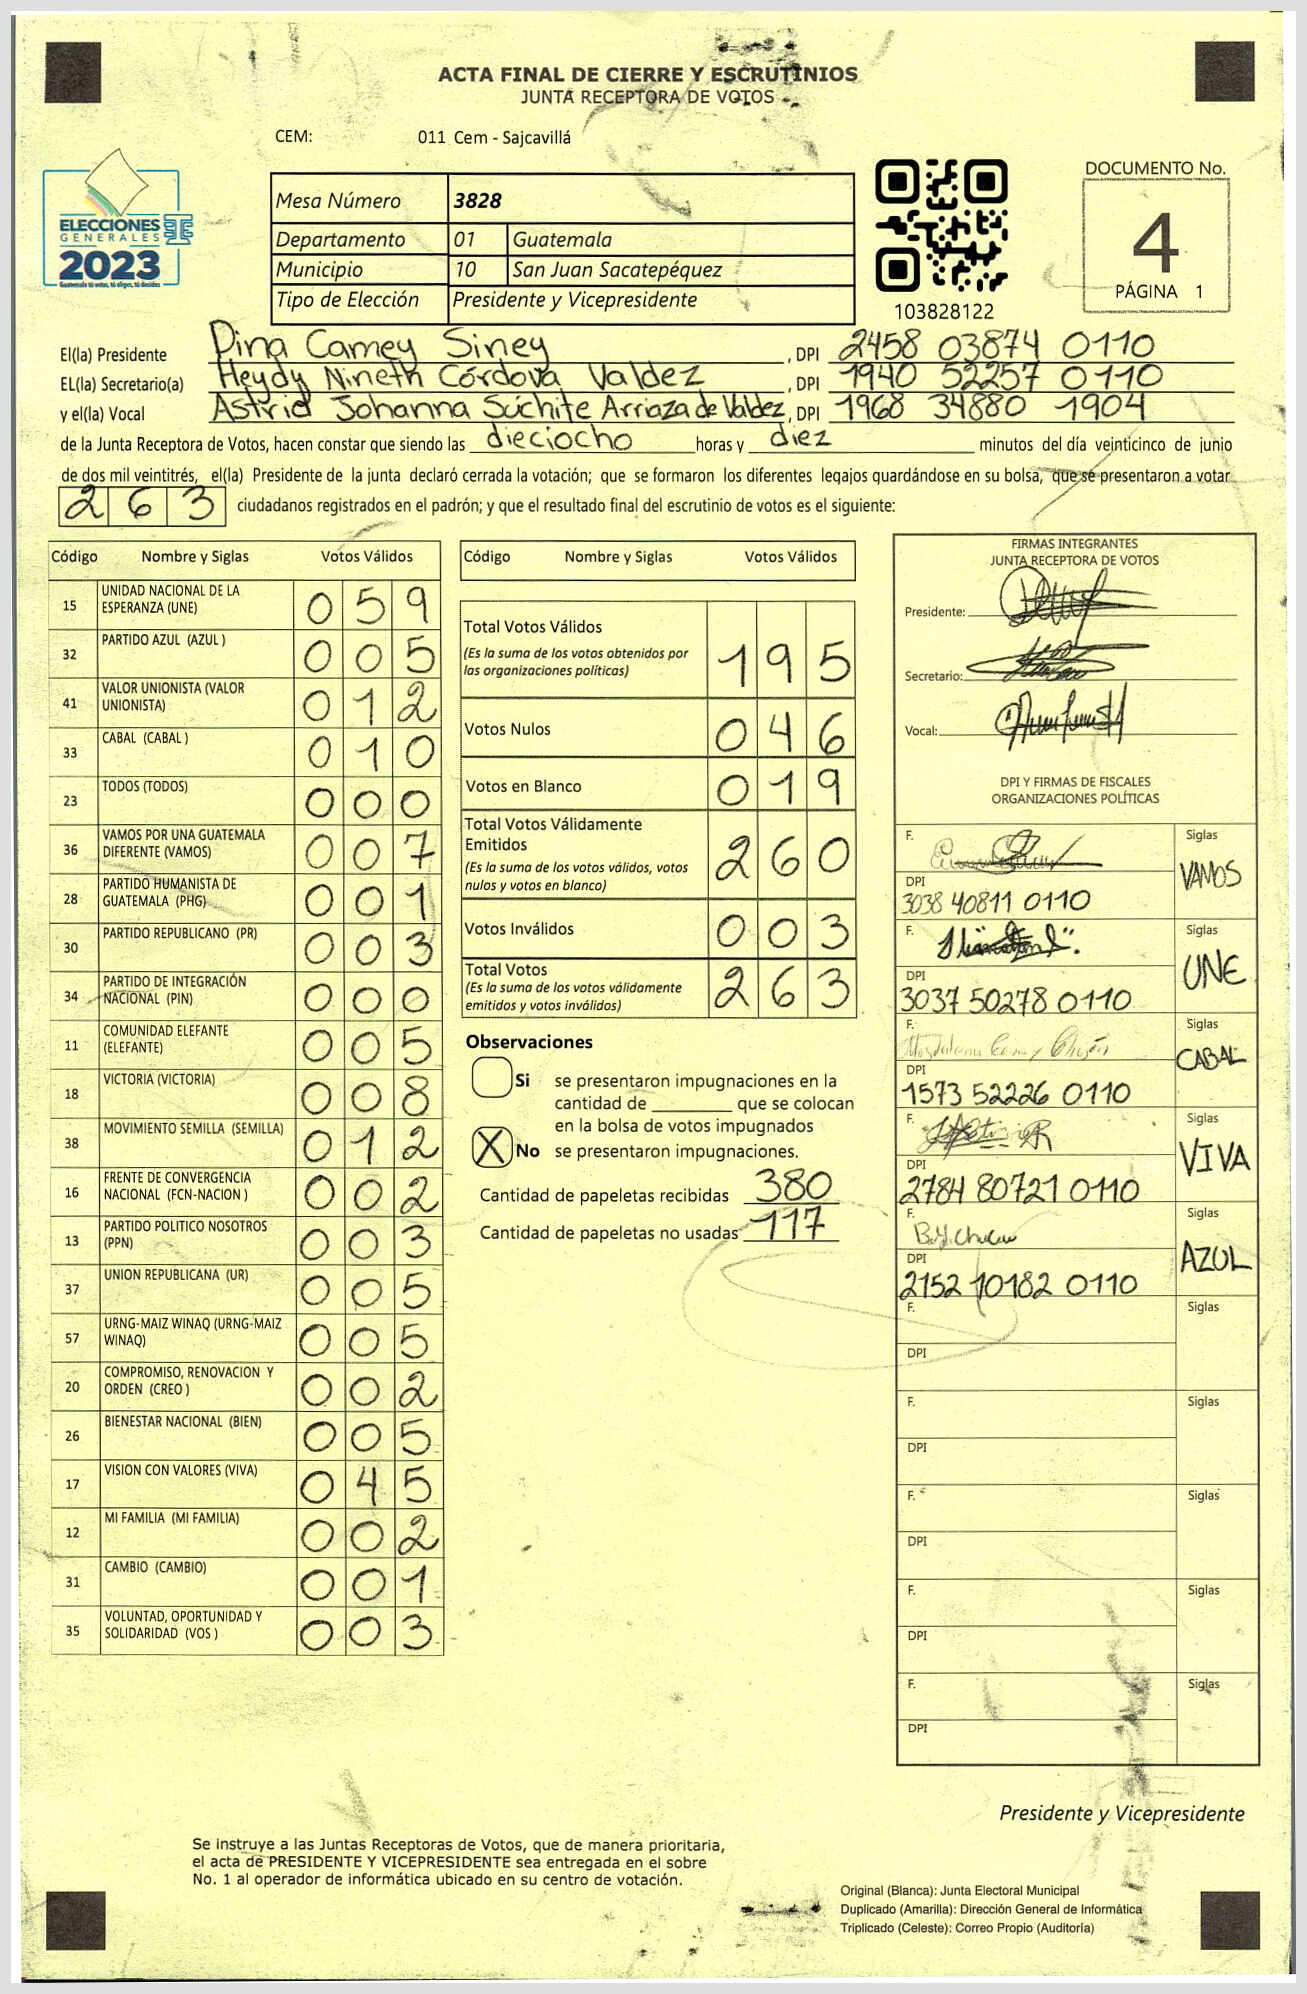 ACTA FINAL DE CIERRE Y ESCRUTINIOS
JUNTA RECEPTORA DE VOTOS
CEM: 011 Cem - Sajcavillá
ELECCIONES
GENERALES
2023
Guatemala tú votas, tú eliges, tú decides
Mesa Número 3828
Departamento 01 Guatemala
Municipio 10 San Juan Sacatepéquez
Tipo de Elección Presidente y Vicepresidente
103828122
DOCUMENTO No.
4
PÁGINA 1
El(la) Presidente Dina Camey Siney , DPI 2458 03874 0110
EL(la) Secretario(a) Heydy Nineth Córdova Valdez , DPI 1940 52257 0110
y el(la) Vocal Astrid Johanna Súchite Arriaza de Valdez, DPI 1968 34880 1904
de la Junta Receptora de Votos, hacen constar que siendo las dieciocho horas y diez minutos del día veinticinco de junio
de dos mil veintitrés, el(la) Presidente de la junta declaró cerrada la votación; que se formaron los diferentes legajos guardándose en su bolsa, que se presentaron a votar
263 ciudadanos registrados en el padrón; y que el resultado final del escrutinio de votos es el siguiente:
Código Nombre y Siglas Votos Válidos
15 UNIDAD NACIONAL DE LA ESPERANZA (UNE) 059
32 PARTIDO AZUL (AZUL ) 005
41 VALOR UNIONISTA (VALOR UNIONISTA) 012
33 CABAL (CABAL ) 010
23 TODOS (TODOS) 000
36 VAMOS POR UNA GUATEMALA DIFERENTE (VAMOS) 007
28 PARTIDO HUMANISTA DE GUATEMALA (PHG) 001
30 PARTIDO REPUBLICANO (PR) 003
34 PARTIDO DE INTEGRACIÓN NACIONAL (PIN) 000
11 COMUNIDAD ELEFANTE (ELEFANTE) 005
18 VICTORIA (VICTORIA) 008
38 MOVIMIENTO SEMILLA (SEMILLA) 012
16 FRENTE DE CONVERGENCIA NACIONAL (FCN-NACION ) 002
13 PARTIDO POLITICO NOSOTROS (PPN) 003
37 UNION REPUBLICANA (UR) 005
57 URNG-MAIZ WINAQ (URNG-MAIZ WINAQ) 005
20 COMPROMISO, RENOVACION Y ORDEN (CREO ) 002
26 BIENESTAR NACIONAL (BIEN) 005
17 VISION CON VALORES (VIVA) 045
12 MI FAMILIA (MI FAMILIA) 002
31 CAMBIO (CAMBIO) 001
35 VOLUNTAD, OPORTUNIDAD Y SOLIDARIDAD (VOS ) 003
Código Nombre y Siglas Votos Válidos
Total Votos Válidos
(Es la suma de los votos obtenidos por las organizaciones políticas) 195
Votos Nulos 046
Votos en Blanco 019
Total Votos Válidamente Emitidos
(Es la suma de los votos válidos, votos nulos y votos en blanco) 260
Votos Inválidos 003
Total Votos
(Es la suma de los votos válidamente emitidos y votos inválidos) 263
Observaciones
Si se presentaron impugnaciones en la
cantidad de ________ que se colocan
en la bolsa de votos impugnados
X No se presentaron impugnaciones.
Cantidad de papeletas recibidas 380
Cantidad de papeletas no usadas 117
FIRMAS INTEGRANTES
JUNTA RECEPTORA DE VOTOS
Presidente:
Secretario:
Vocal:
DPI Y FIRMAS DE FISCALES
ORGANIZACIONES POLÍTICAS
F. Siglas
VAMOS
DPI
3038 40811 0110
F. Siglas
UNE
DPI
3037 50278 0110
F. Siglas
CABAL
DPI
1573 52226 0110
F. Siglas
VIVA
DPI
2784 80721 0110
F. Siglas
AZUL
DPI
2152 10182 0110
F. Siglas
DPI
F. Siglas
DPI
F. Siglas
DPI
F. Siglas
DPI
F. Siglas
DPI
Presidente y Vicepresidente
Se instruye a las Juntas Receptoras de Votos, que de manera prioritaria,
el acta de PRESIDENTE Y VICEPRESIDENTE sea entregada en el sobre
No. 1 al operador de informática ubicado en su centro de votación.
Original (Blanca): Junta Electoral Municipal
Duplicado (Amarilla): Dirección General de Informática
Triplicado (Celeste): Correo Propio (Auditoría)